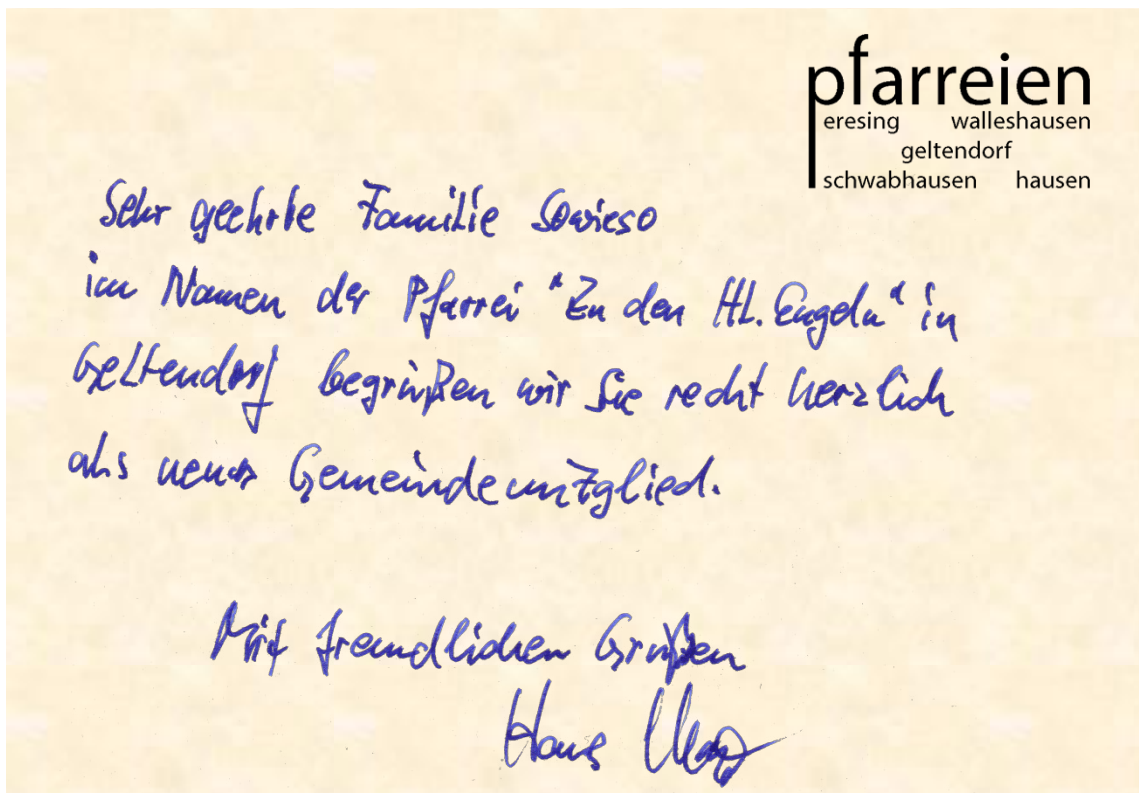 pfarreien
eresing walleshausen
geltendorf
schwabhausen hausen
Sehr geehrte Familie Sowieso
im Namen der Pfarrei "Zu den Hl. Engeln" in
Geltendorf begrüßen wir Sie recht herzlich
als neues Gemeindemitglied.
Mit freundlichen Grüßen
Hans